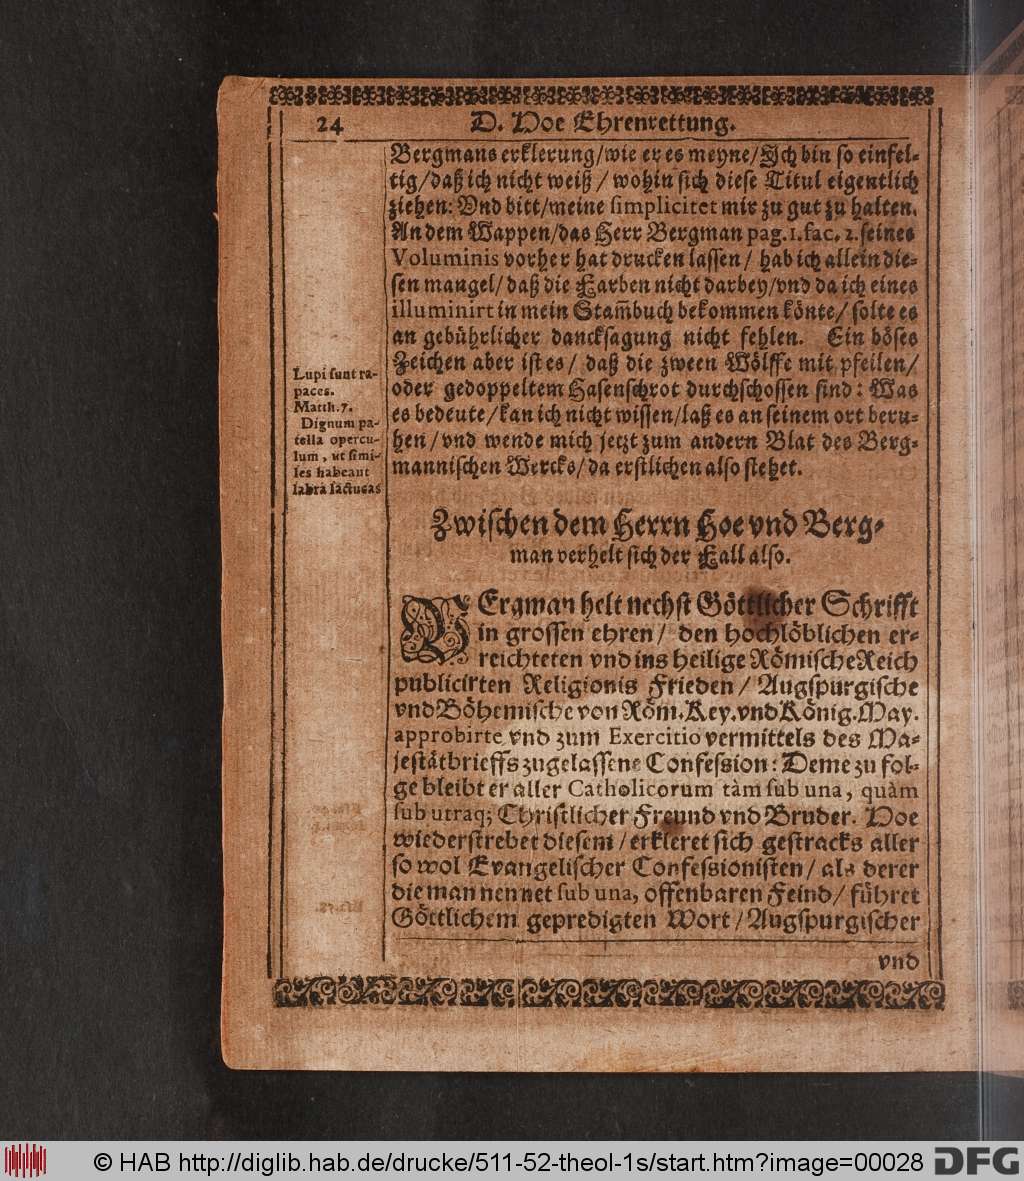 24
D. Hoe Ehrenrettung.
Bergmans erklerung/wie er es meyne/Ich bin so einfel-
tig/daß ich nicht weiß / wohin sich diese Titul eigentlich
ziehen: Vnd bitt/meine simplicitet mir zu gut zu halten.
An dem Wappen/das Herr Bergman pag. 1. fac. 2. seines
Voluminis vorher hat drucken lassen / hab ich allein die-
sen mangel/daß die Farben nicht darbey/vnd da ich eines
illuminirt in mein Stam̃buch bekommen könte/ solte es
an gebührlicher dancksagung nicht fehlen. Ein böses
Zeichen aber ist es / daß die zween Wölffe mit pfeilen/
oder gedoppeltem Hasenschrot durchschossen sind: Was
es bedeute/kan ich nicht wissen/laß es an seinem ort beru-
hen / vnd wende mich jetzt zum andern Blat des Berg-
mannischen Wercks/da erstlichen also stehet.
Lupi sunt ra-
paces.
Matth. 7.
Dignum pa-
tella opercu-
lum, ut simi-
les habeant
labra lactucas
Zwischen dem Herrn Hoe vnd Berg-
man verhelt sich der Fall also.
BErgman helt nechst Göttlicher Schrifft
in grossen ehren / den hochlöblichen er-
reichteten vnd ins heilige Römische Reich
publicirten Religionis Frieden / Augspurgische
vnd Böhemische von Röm. Key. vnd König. May.
approbirte vnd zum Exercitio vermittels des Ma-
jestätbrieffs zugelassene Confession: Deme zu fol-
ge bleibt er aller Catholicorum tàm sub una, quàm
sub utraq; Christlicher Freund vnd Bruder. Hoe
wiederstrebet diesem / erkleret sich gestracks aller
so wol Evangelischer Confessionisten / als derer
die man nennet sub una, offenbaren Feind / führet
Göttlichem gepredigten Wort / Augspurgischer
vnd
© HAB http://diglib.hab.de/drucke/511-52-theol-1s/start.htm?image=00028
DFG